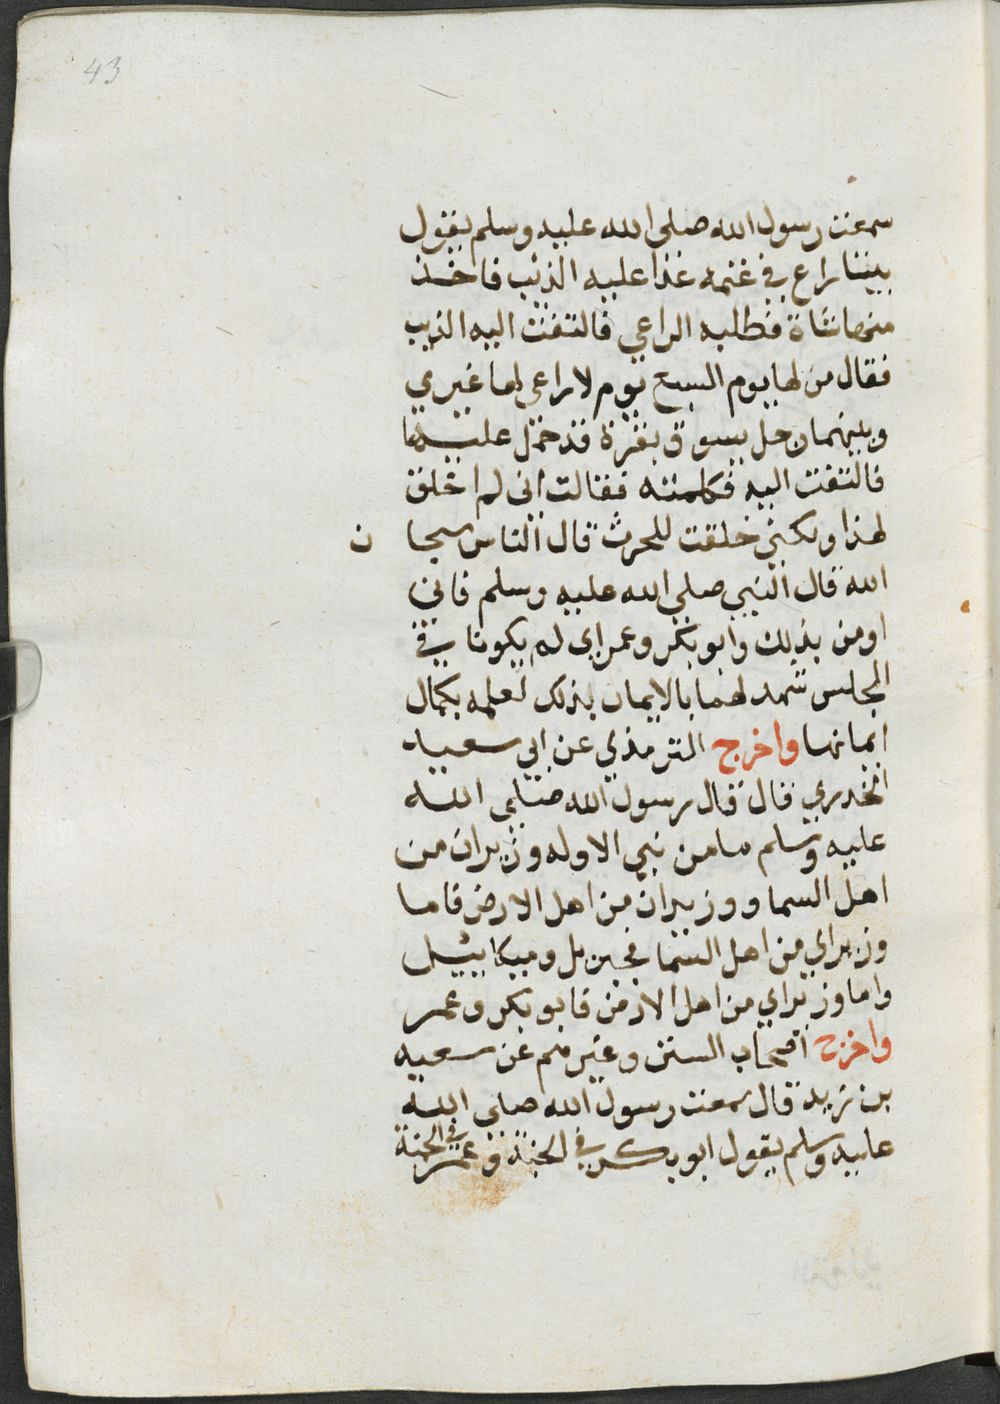 43
سمعت رسول الله صلى الله عليه وسلم يقول
بينا راع في غنمه غدا عليه الذئب فاخذ
منها شاة فطلبه الراعي فالتفت اليه الذيب
فقال من لها يوم السبع يوم لا راعي لها غيري
وبينما رجل يسوق بقرة قد حمل عليها
فالتفتت اليه فكلمته فقالت اني لم اخلق
لهذا ولكني خلقت للحرث قال الناس سبحا ن
الله قال النبي صلى الله عليه وسلم فاني
اومن بذلك وابو بكر وعمر اي لم يكونا في
المجلس شهد لهما بالايمان بذلك لعلمه بكمال
ايمانهما واخرج الترمذي عن ابي سعيد
الخدري قال قال رسول الله صلى الله
عليه وسلم ما من نبي الا وله وزيران من
اهل السما ووزيران من اهل الارض فاما
وزيراي من اهل السما فجبريل وميكائيل
واما وزيراي من اهل الارض فابو بكر وعمر
واخرج اصحاب السنن وغيرهم عن سعيد
بن زيد قال سمعت رسول الله صلى الله
عليه وسلم يقول ابو بكر في الجنة وعمر في الجنة